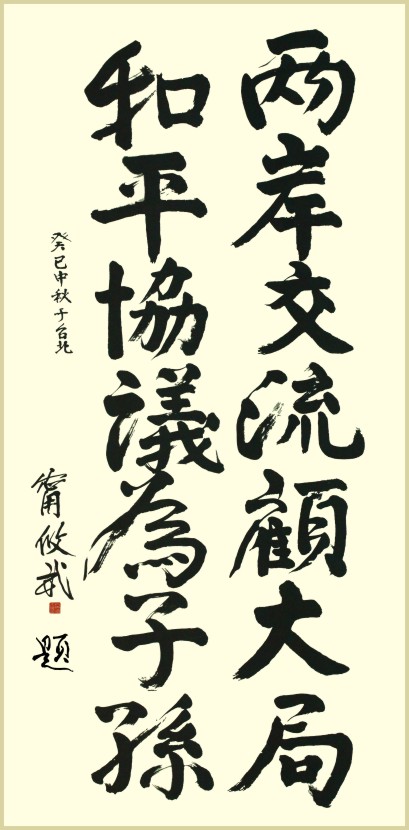 两岸交流顧大局
和平協議為子孫
癸巳中秋于台北
甯攸武
題